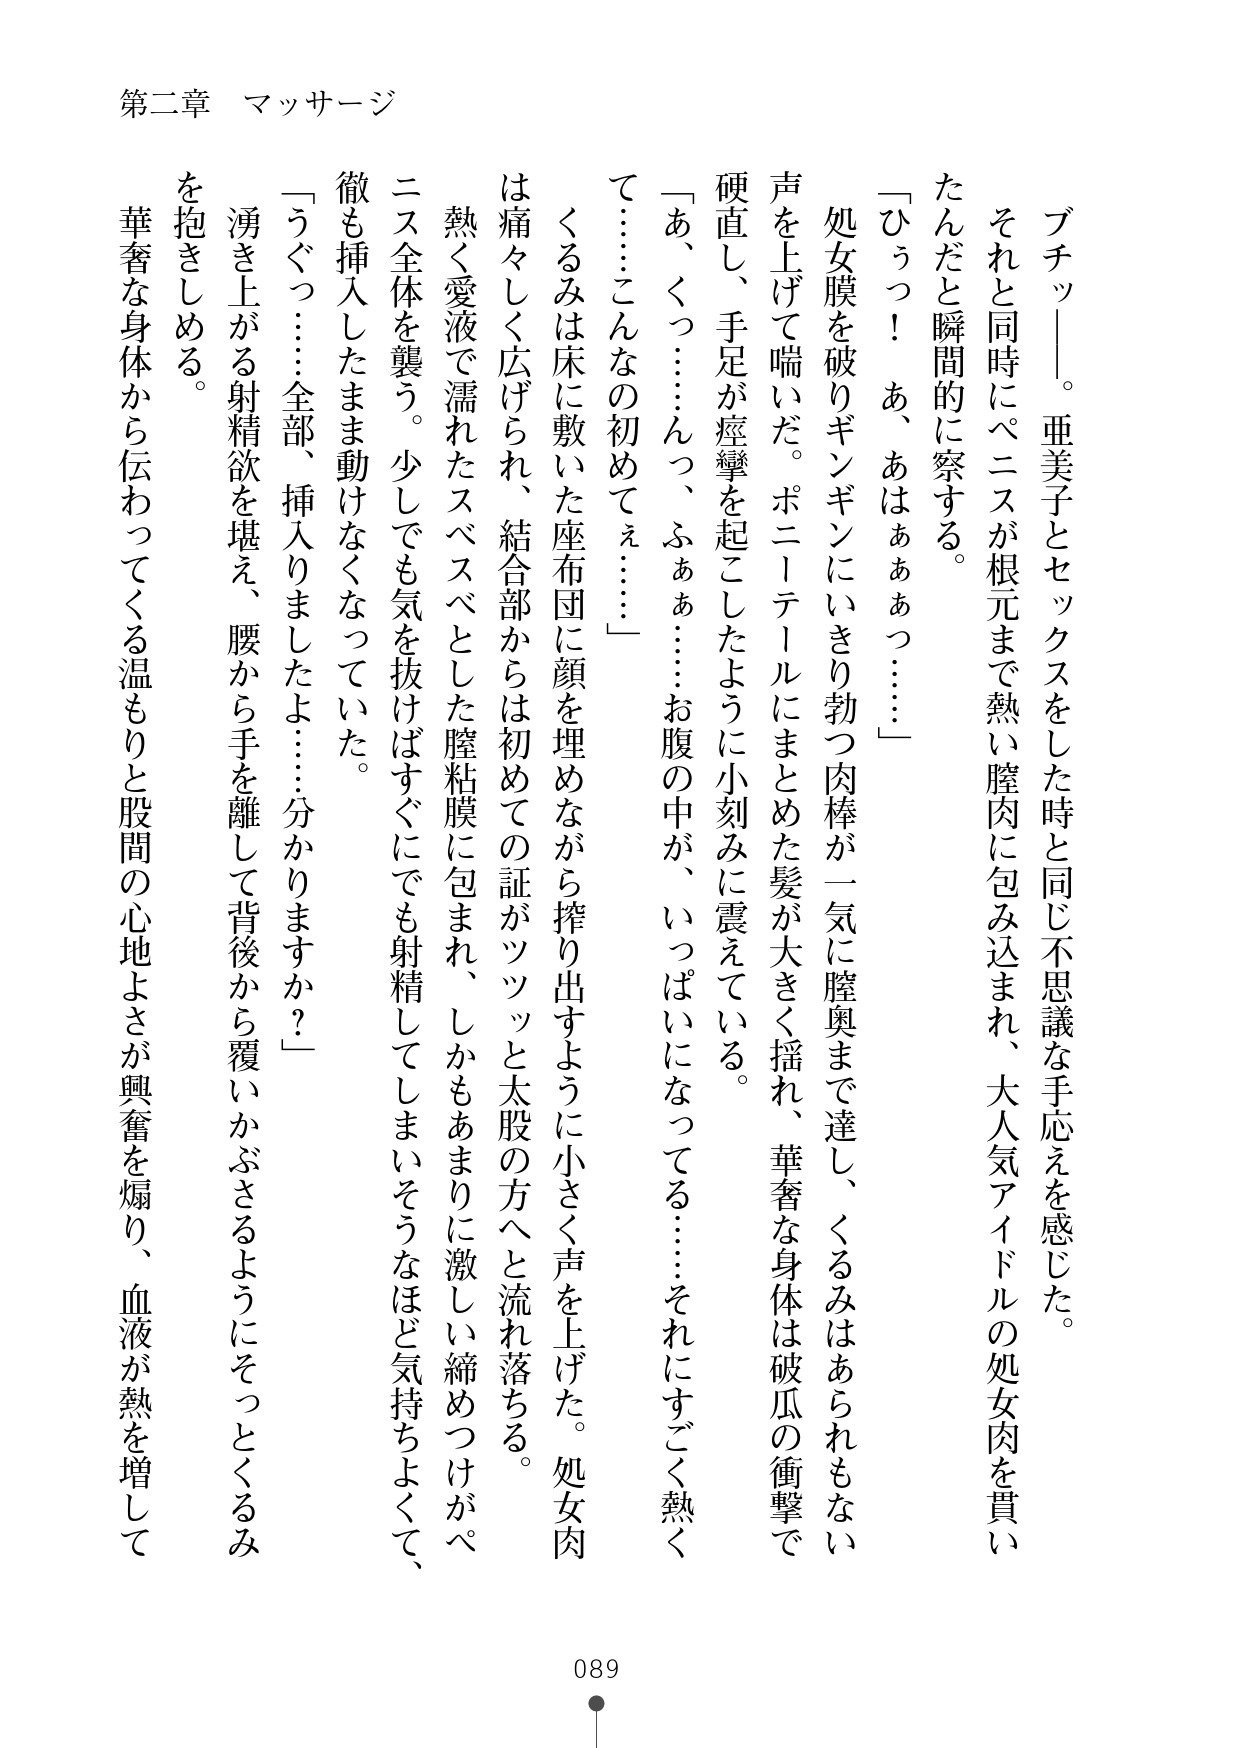 第二章　マッサージ
　ブチッ――。亜美子とセックスをした時と同じ不思議な手応えを感じた。
　それと同時にペニスが根元まで熱い膣肉に包み込まれ、大人気アイドルの処女肉を貫い
たんだと瞬間的に察する。
「ひぅっ！　あ、あはぁぁぁっ……」
　処女膜を破りギンギンにいきり勃つ肉棒が一気に膣奥まで達し、くるみはあられもない
声を上げて喘いだ。ポニーテールにまとめた髪が大きく揺れ、華奢な身体は破瓜の衝撃で
硬直し、手足が痙攣を起こしたように小刻みに震えている。
「あ、くっ……んっ、ふぁぁ……お腹の中が、いっぱいになってる……それにすごく熱く
て……こんなの初めてぇ……」
　くるみは床に敷いた座布団に顔を埋めながら搾り出すように小さく声を上げた。処女肉
は痛々しく広げられ、結合部からは初めての証がツツッと太股の方へと流れ落ちる。
　熱く愛液で濡れたスベスベとした膣粘膜に包まれ、しかもあまりに激しい締めつけがペ
ニス全体を襲う。少しでも気を抜けばすぐにでも射精してしまいそうなほど気持ちよくて、
徹も挿入したまま動けなくなっていた。
「うぐっ……全部、挿入りましたよ……分かりますか？」
　湧き上がる射精欲を堪え、腰から手を離して背後から覆いかぶさるようにそっとくるみ
を抱きしめる。
　華奢な身体から伝わってくる温もりと股間の心地よさが興奮を煽り、血液が熱を増して
089